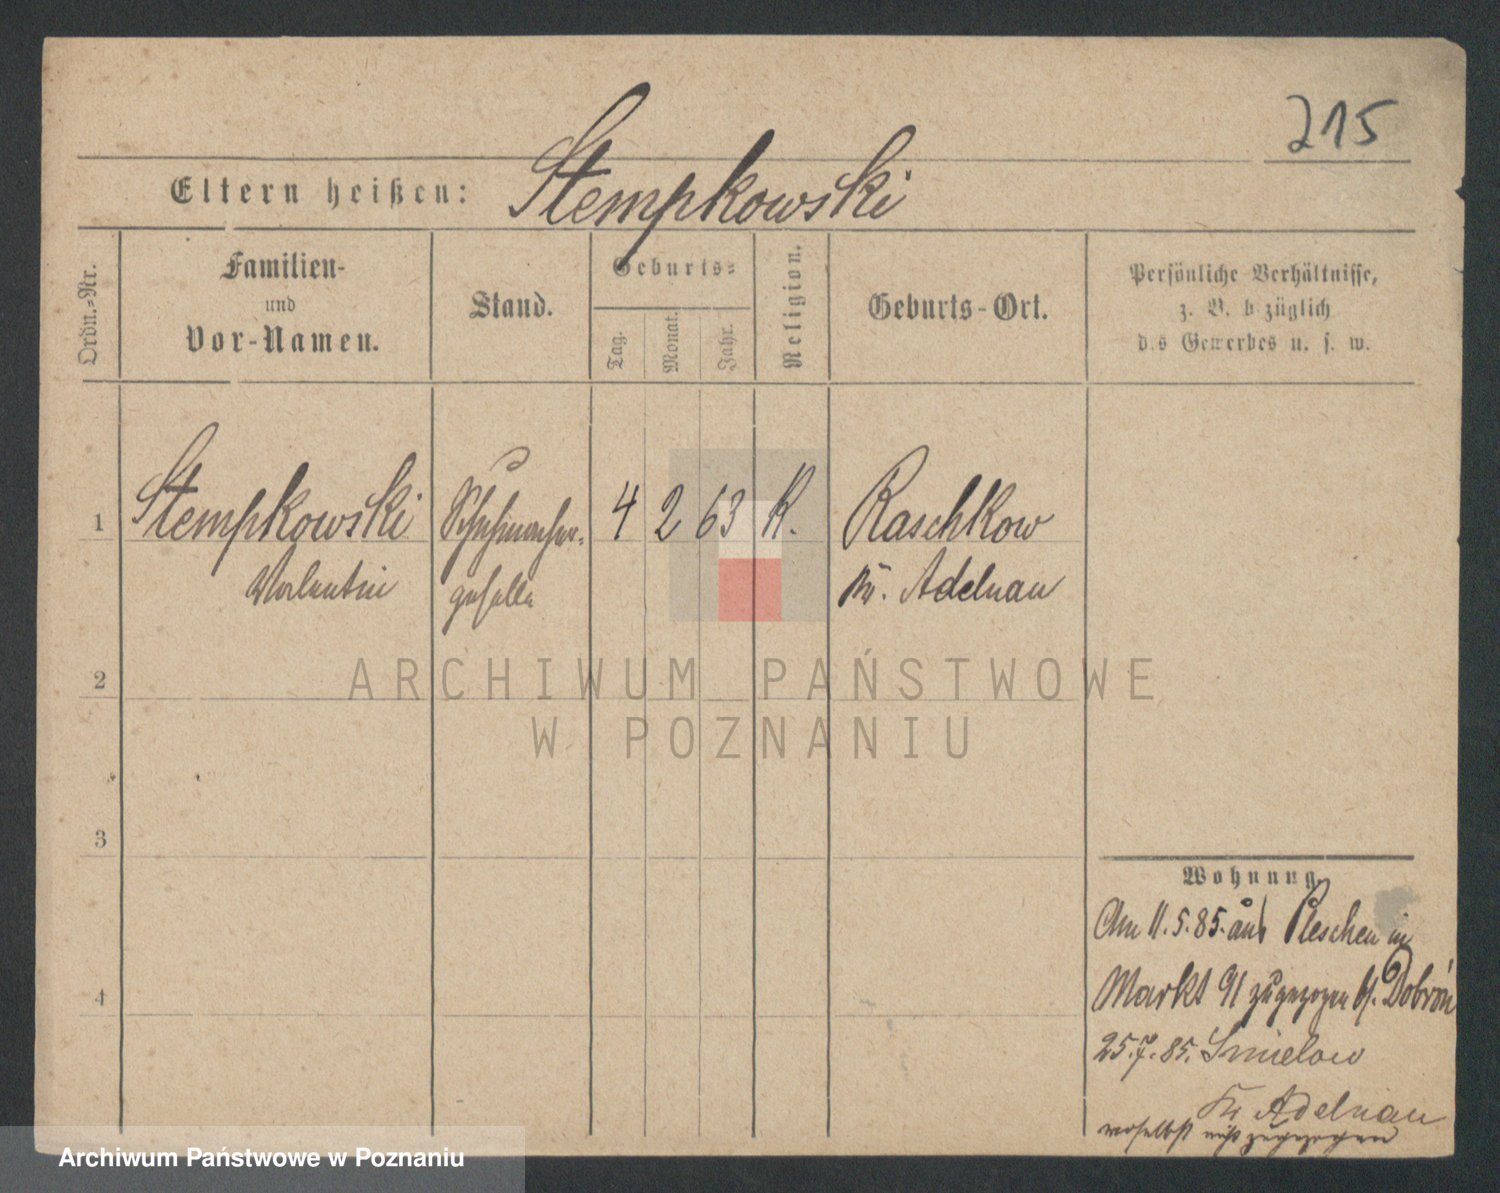 215
Eltern heißen: Stempkowski
Ordn.-Nr.
Familien-
und
Vor-Namen.
Stand.
Geburts-
Tag.
Monat.
Jahr.
Religion.
Geburts-Ort.
Persönliche Verhältnisse,
z. B. bezüglich
des Gewerbes u. s. w.
1 Stempkowski Schuhmacher- 4 2 63 K. Raschkow
Valentin geselle Kr. Adelnau
2
3
4
Wohnung.
Am 11.5.85. aus Pleschen in
Markt 91 zugezogen b/. Dobrón
25.7.85. Smielow
Kr Adelnau
woselbst nicht zugezogen
ARCHIWUM PAŃSTWOWE
W POZNANIU
Archiwum Państwowe w Poznaniu